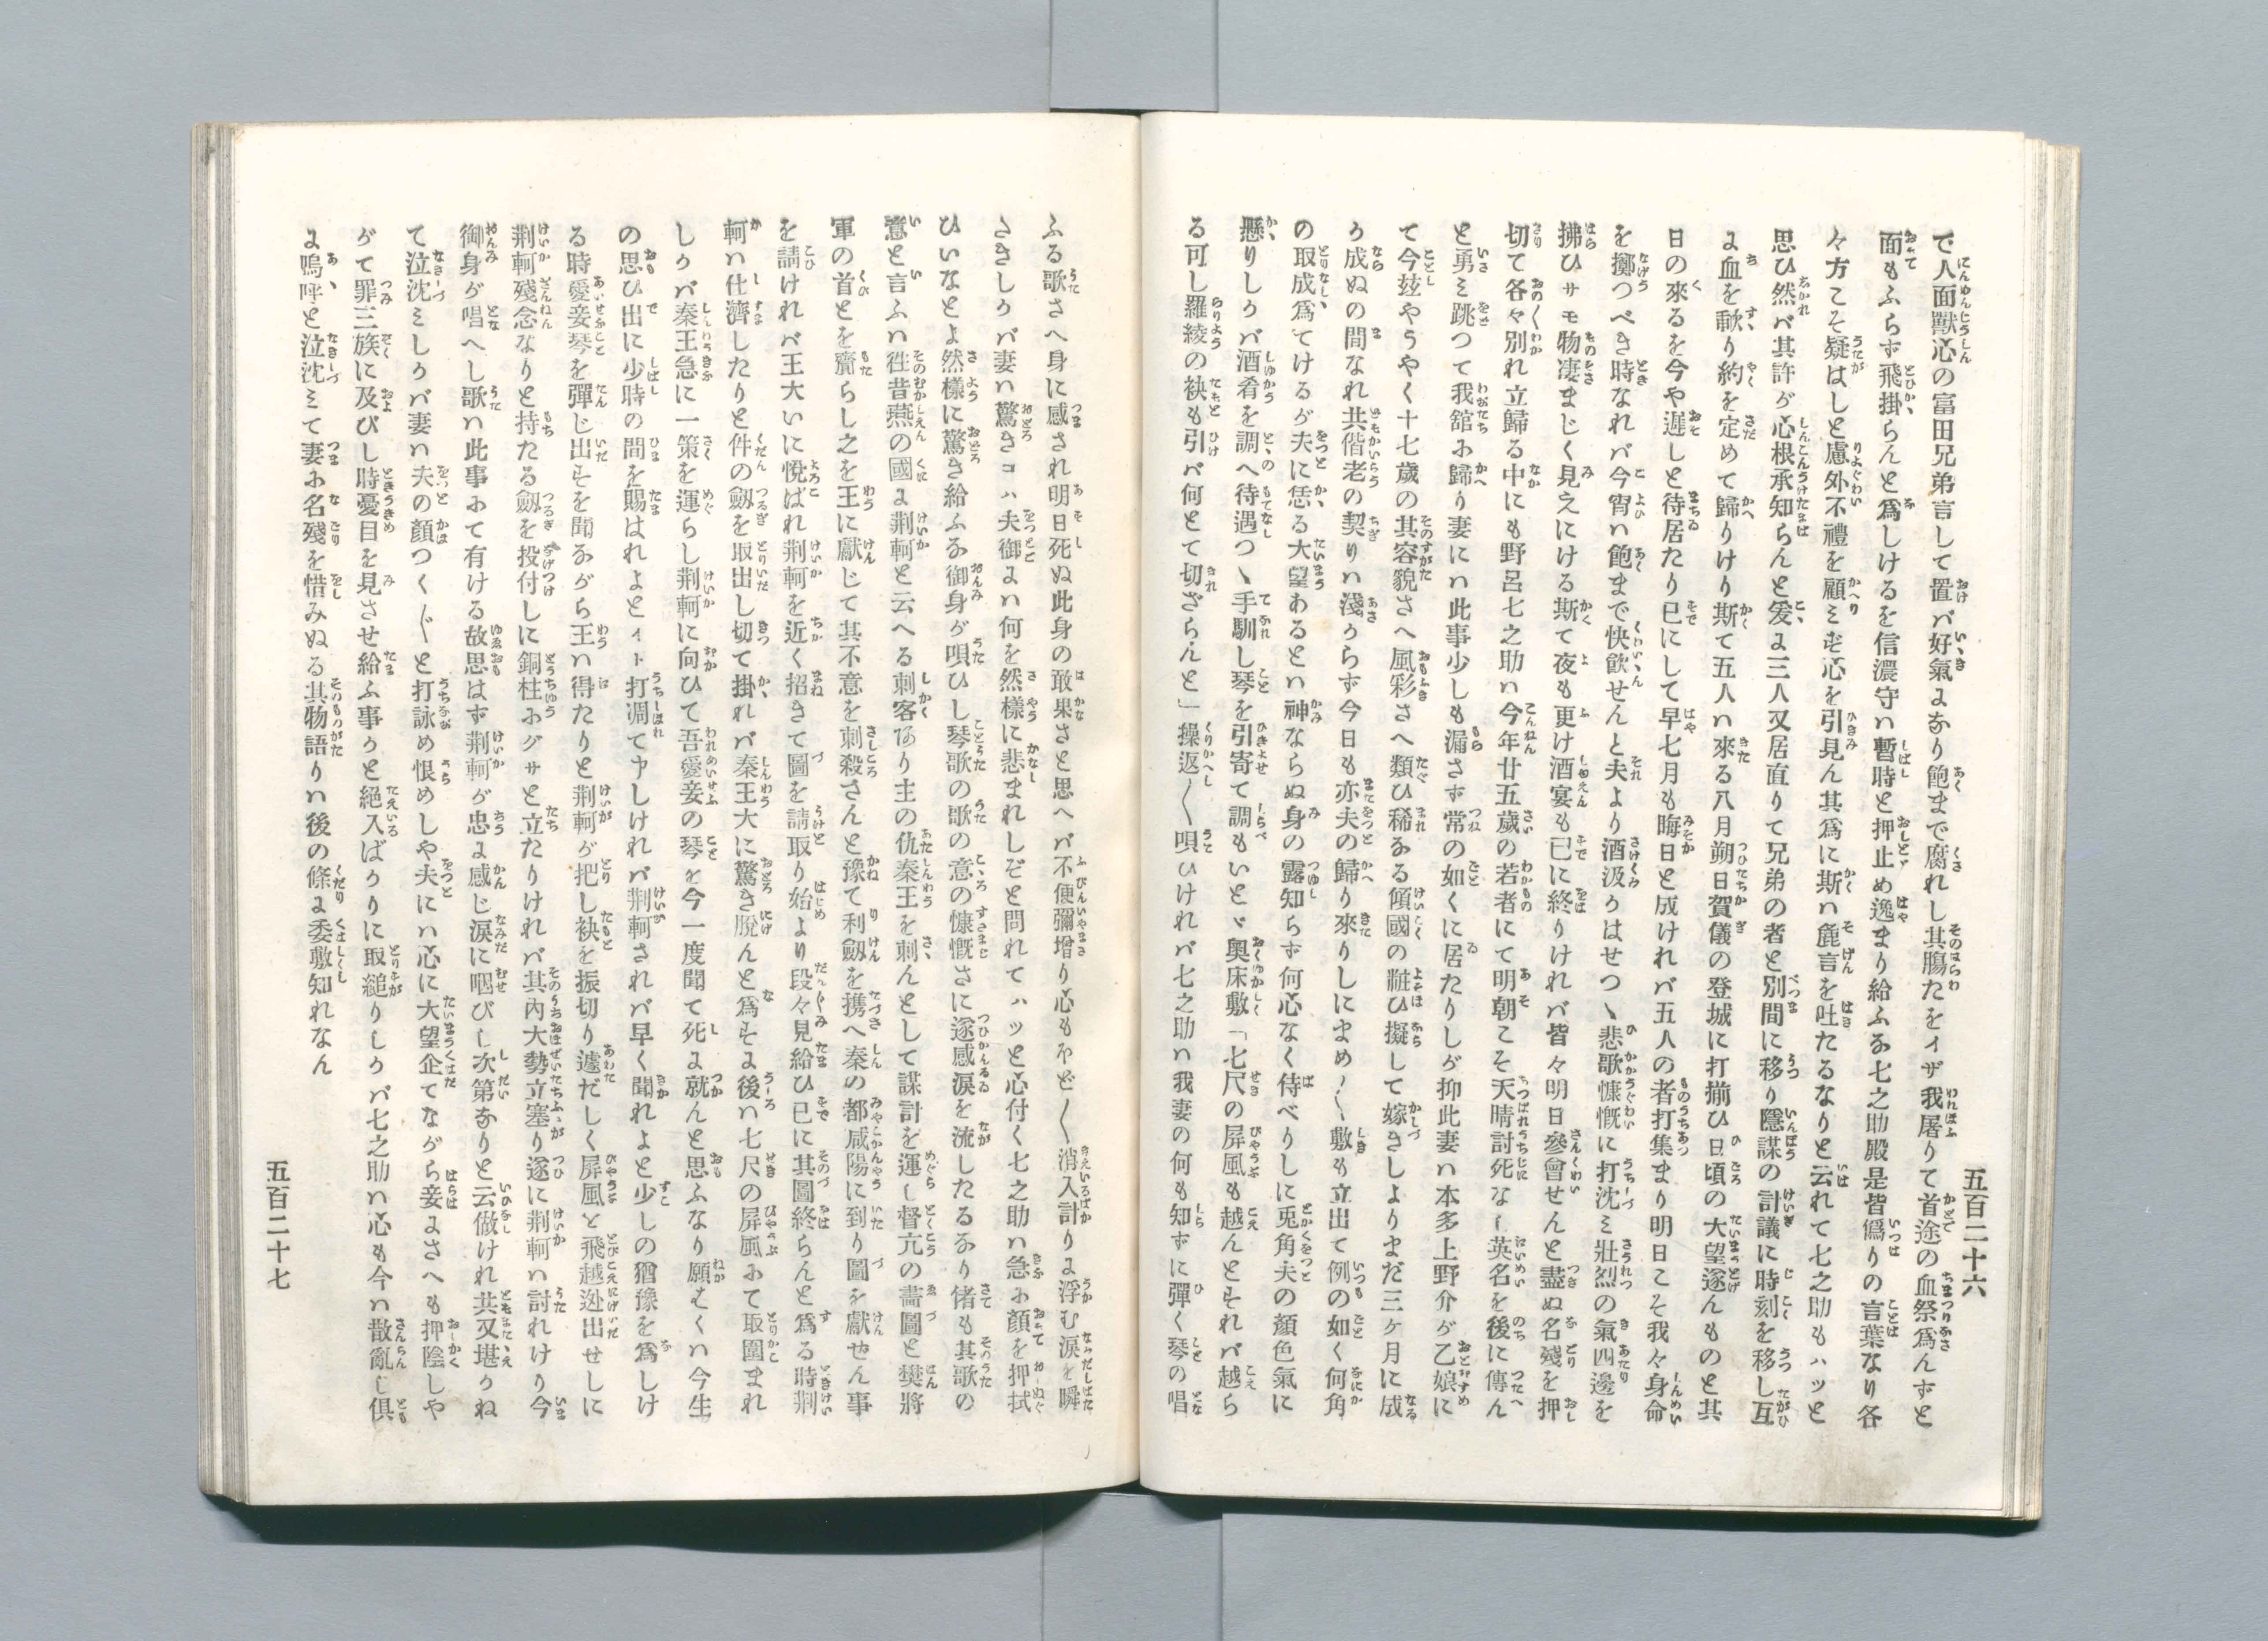 五百二十六
で人面獸心の富田兄弟言して置バ好氣よなり飽まで腐れし其膓たをイザ我屠りて首途の血祭爲んずと
面もふらず飛掛らんと爲しけるを信濃守ハ暫時と押止め逸まり給ふな七之助殿是皆僞りの言葉なり各
々方こそ疑はしと慮外不禮を顧ミず心を引見ん其爲に斯ハ麁言を吐たるなりと云れて七之助もハッと
思ひ然れバ其許が心根承知らんと爰よ三人又居直りて兄弟の者と別間に移り隱謀の計議に時刻を移し互
よ血を歃り約を定めて歸りけり斯て五人ハ來る八月朔日賀儀の登城に打揃ひ日頃の大望遂んものと其
日の來るを今や遲しと待居たり已にして早七月も晦日と成けれバ五人の者打集まり明日こそ我々身命
を擲つべき時なれバ今宵ハ飽まで快飮せんと夫より酒汲かはせつゝ悲歌慷慨に打沈ミ壯烈の氣四邊を
拂ひサモ物凄まじく見えにける斯て夜も更け酒宴も已に終りけれバ皆々明日參會せんと盡ぬ名殘を押
切て各々別れ立歸る中にも野呂七之助ハ今年廿五歲の若者にて明朝こそ天晴討死なし英名を後に傳ん
と勇ミ跳つて我舘お歸り妻にハ此事少しも漏さず常の如くに居たりしが抑此妻ハ本多上野介が乙娘に
て今玆やうやく十七歲の其容貌さへ風彩さへ類ひ稀なる傾國の粧ひ擬して嫁きしよりまだ三ケ月に成
か成ぬの間なれ共偕老の契りハ淺からず今日も亦夫の歸り來りしにまめ〳〵敷も立出て例の如く何角
の取成爲てけるが夫に恁る大望あるとハ神ならぬ身の露知らず何心なく待べりしに兎角夫の顏色氣に
懸りしかバ酒肴を調へ待遇つゝ手馴し琴を引寄て調もいとゞ奧床敷「七尺の屛風も越んとすれバ越ら
る可し羅綾の袂も引バ何とて切ざらんと」操返〳〵唄ひけれバ七之助ハ我妻の何も知ずに彈く琴の唱
ふる歌さへ身に感され明日死ぬ此身の敢果さと思へバ不便彌增り心もそど〳〵消入計りよ浮む淚を瞬
さきしかバ妻ハ驚きコハ夫御よハ何を然樣に悲まれしぞと問れてハッと心付く七之助ハ急お顏を押拭
ひいなとよ然樣に驚き給ふな御身が唄ひし琴歌の歌の意の慷慨さに遂感淚を流したるなり偖も其歌の
意と言ふハ徃昔燕の國よ荆軻と云へる刺客あり主の仇秦王を刺んとして謀計を運し督亢の畵圖と樊將
軍の首とを齎らし之を王に獻じて其不意を刺殺さんと豫て利劔を携へ秦の都咸陽に到り圖を獻せん事
を請けれバ王大いに悅ばれ荆軻を近く招きて圖を請取り始より段々見給ひ已に其圖終らんと爲る時荆
軻ハ仕濟したりと件の劔を取出し切て掛れバ秦王大に驚き脫んと爲すよ後ハ七尺の屛風おて取圍まれ
しかバ秦王急に一策を運らし荆軻に向ひて吾愛妾の琴を今一度聞て死よ就んと思ふなり願はくハ今生
の思ひ出に少時の間を賜はれよとイト打凋て申しけれバ荆軻されバ早く聞れよと少しの猶豫を爲しけ
る時愛妾琴を彈じ出すを聞ながら王ハ得たりと荆軻が把し袂を振切り遽だしく屛風と飛越迯出せしに
荆軻殘念なりと持たる劔を投付しに銅柱おグサと立たりけれバ其內大勢立塞り遂に荆軻ハ討れけり今
御身が唱へし歌ハ此事おて有ける故思はず荆軻が忠よ感じ淚に咽びし次第なりと云做けれ共又堪かね
て泣沈ミしかバ妻ハ夫の顏つく〴〵と打詠め恨めしや夫にハ心に大望企てながら妾よさへも押陰しや
がて罪三族に及びし時憂目を見させ給ふ事かと絕入ばかりに取縋りしかバ七之助ハ心も今ハ散亂し俱
よ嗚呼と泣沈ミて妻お名殘を惜みぬる其物語りハ後の條よ委敷知れなん
五百二十七